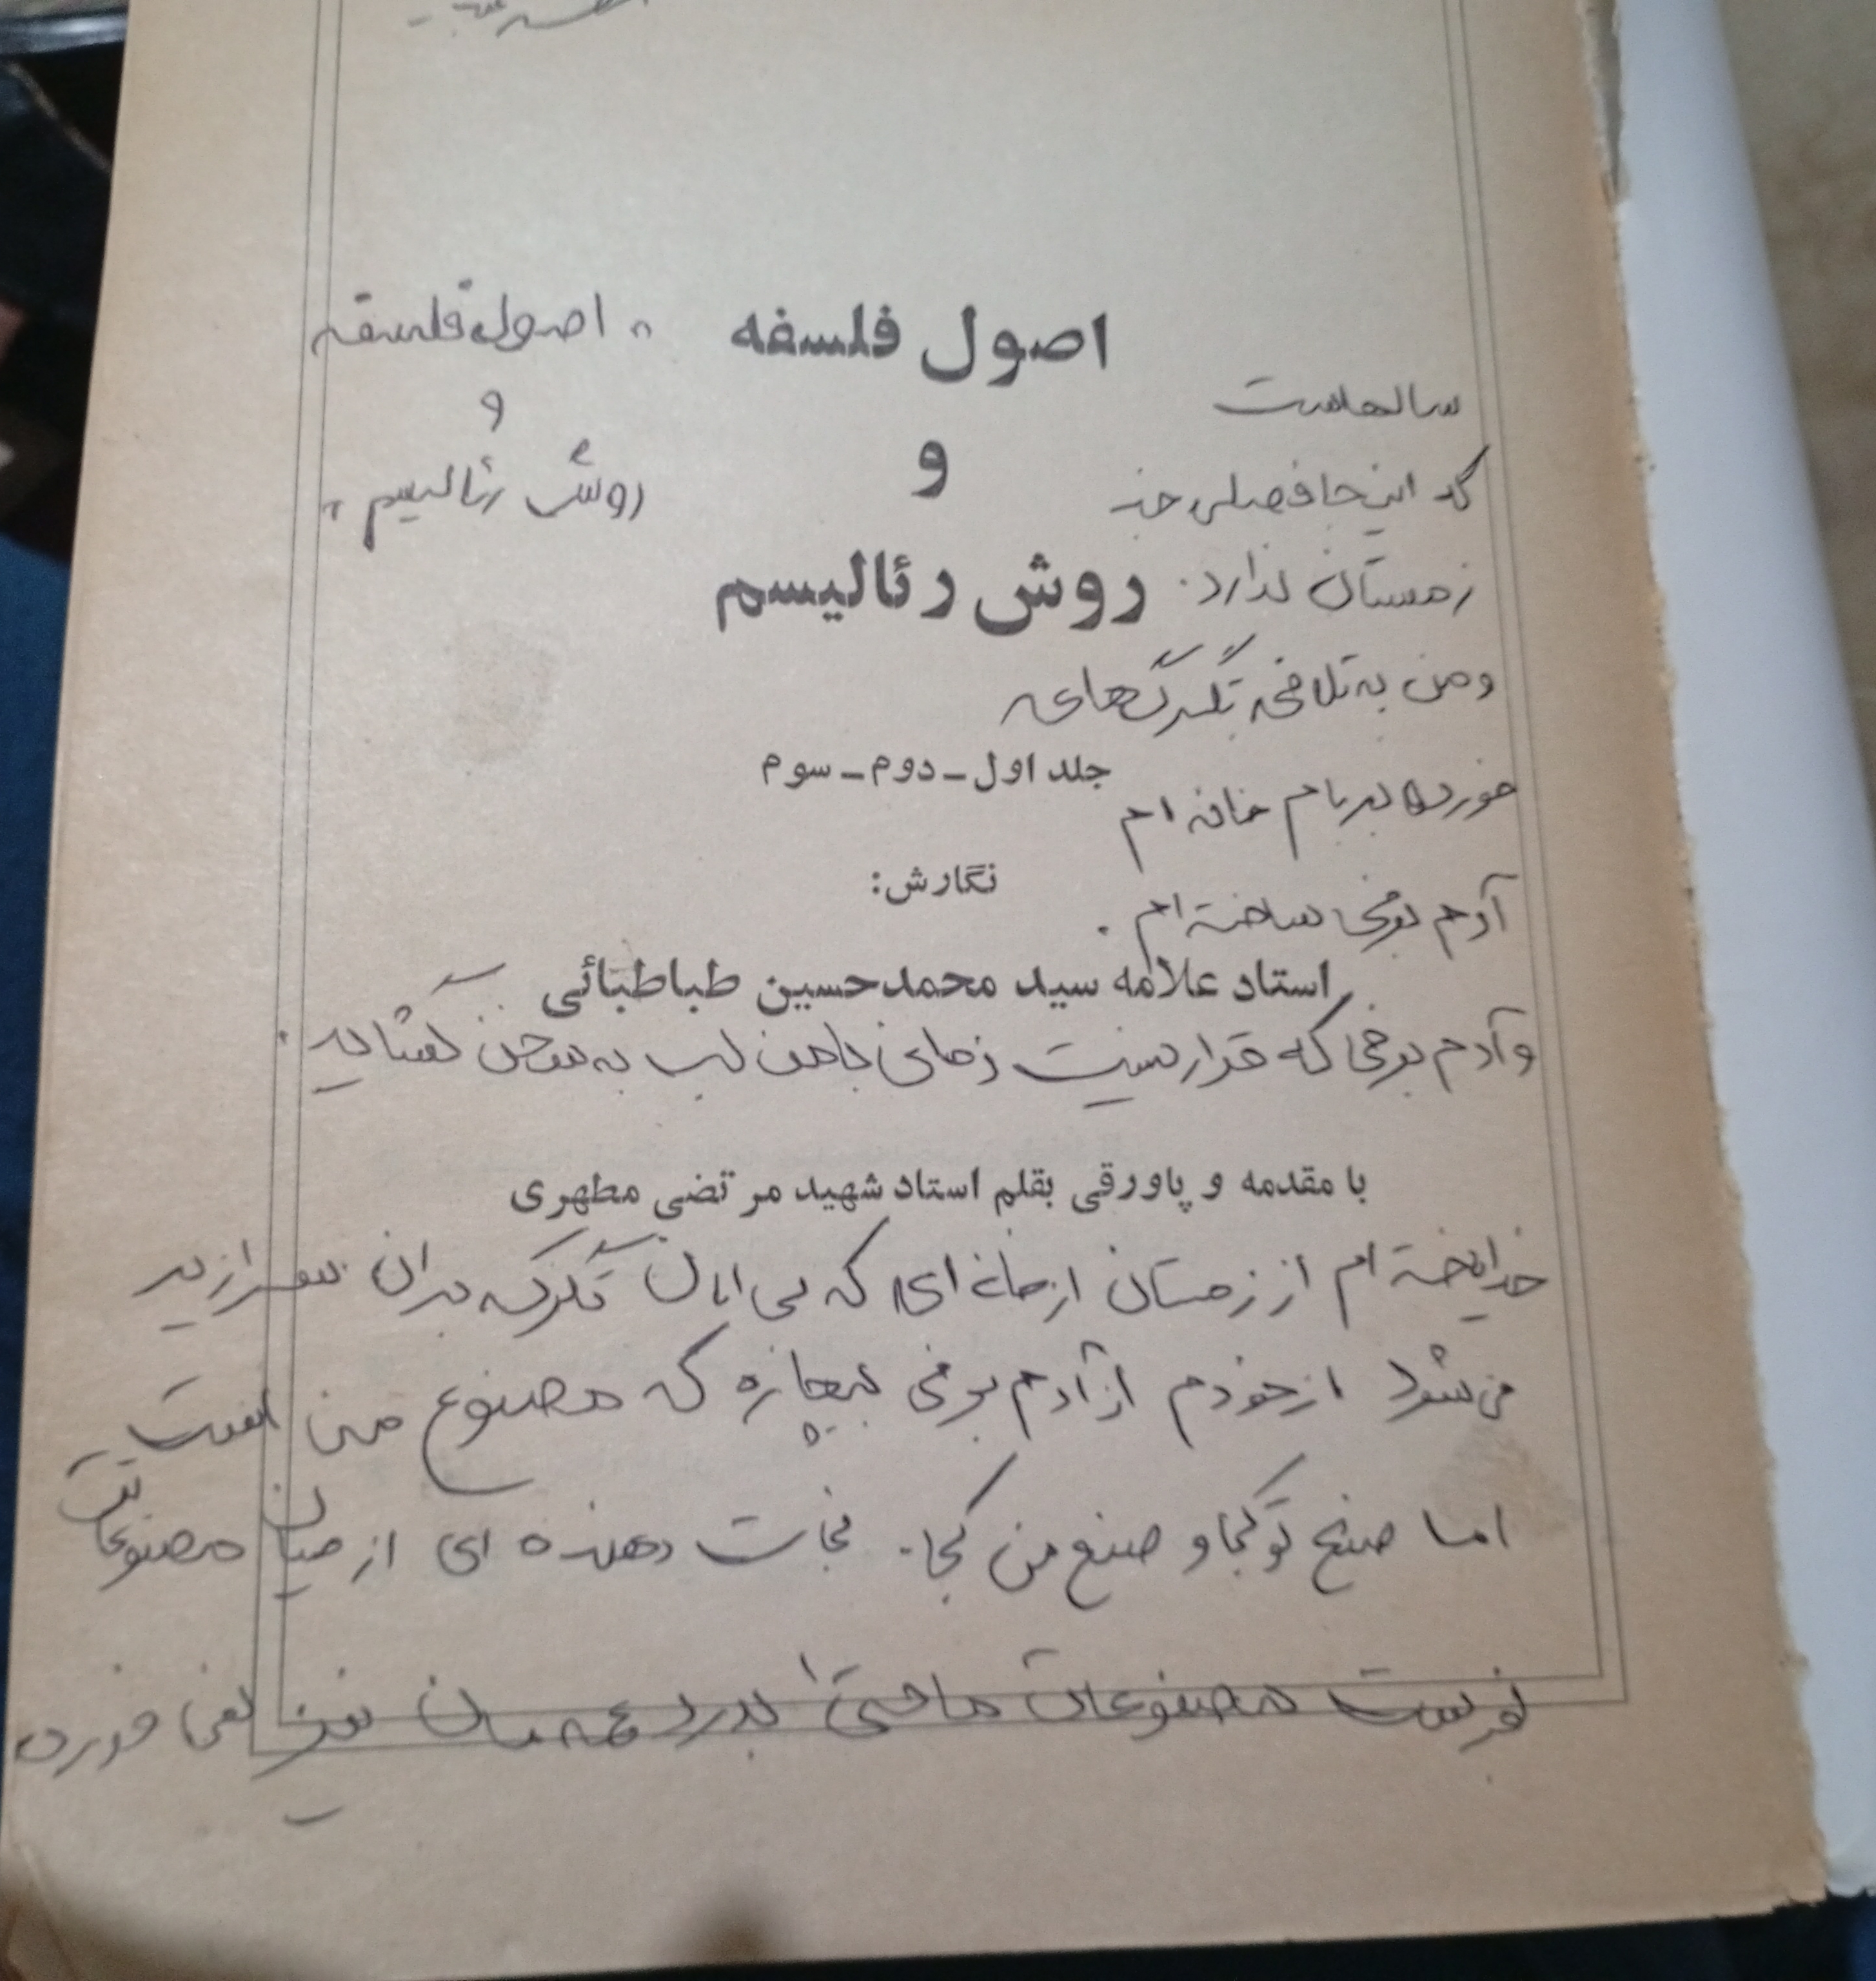 اصول فلسفه
" اصول فلسفه
سالهاست
و
و
که اینجا فصلی جز
روش رئالیسم "
روش رئالیسم
زمستان ندارد.
و من به تلافی تگرگ‌های
جلد اول - دوم - سوم
خورده بر بام خانه ام
نگارش:
آدم برفی ساخته ام.
استاد علامه سید محمدحسین طباطبائی
و آدم برفی که قرار نیست زمانی با من لب به سخن گشاید.
با مقدمه و پاورقی بقلم استاد شهید مرتضی مطهری
خدا خسته ام از زمستان از خانه ای که بی امان تگرگ بر آن سرازیر
می شود از خودم از آدم برفی بیچاره که مصنوع من است
اما صنع تو کجا و صنع من کجا. نجات دهنده ای از میان مصنوعاتت
بفرست مصنوعات ما حتی بدرد خودمان نیز نمی خورد